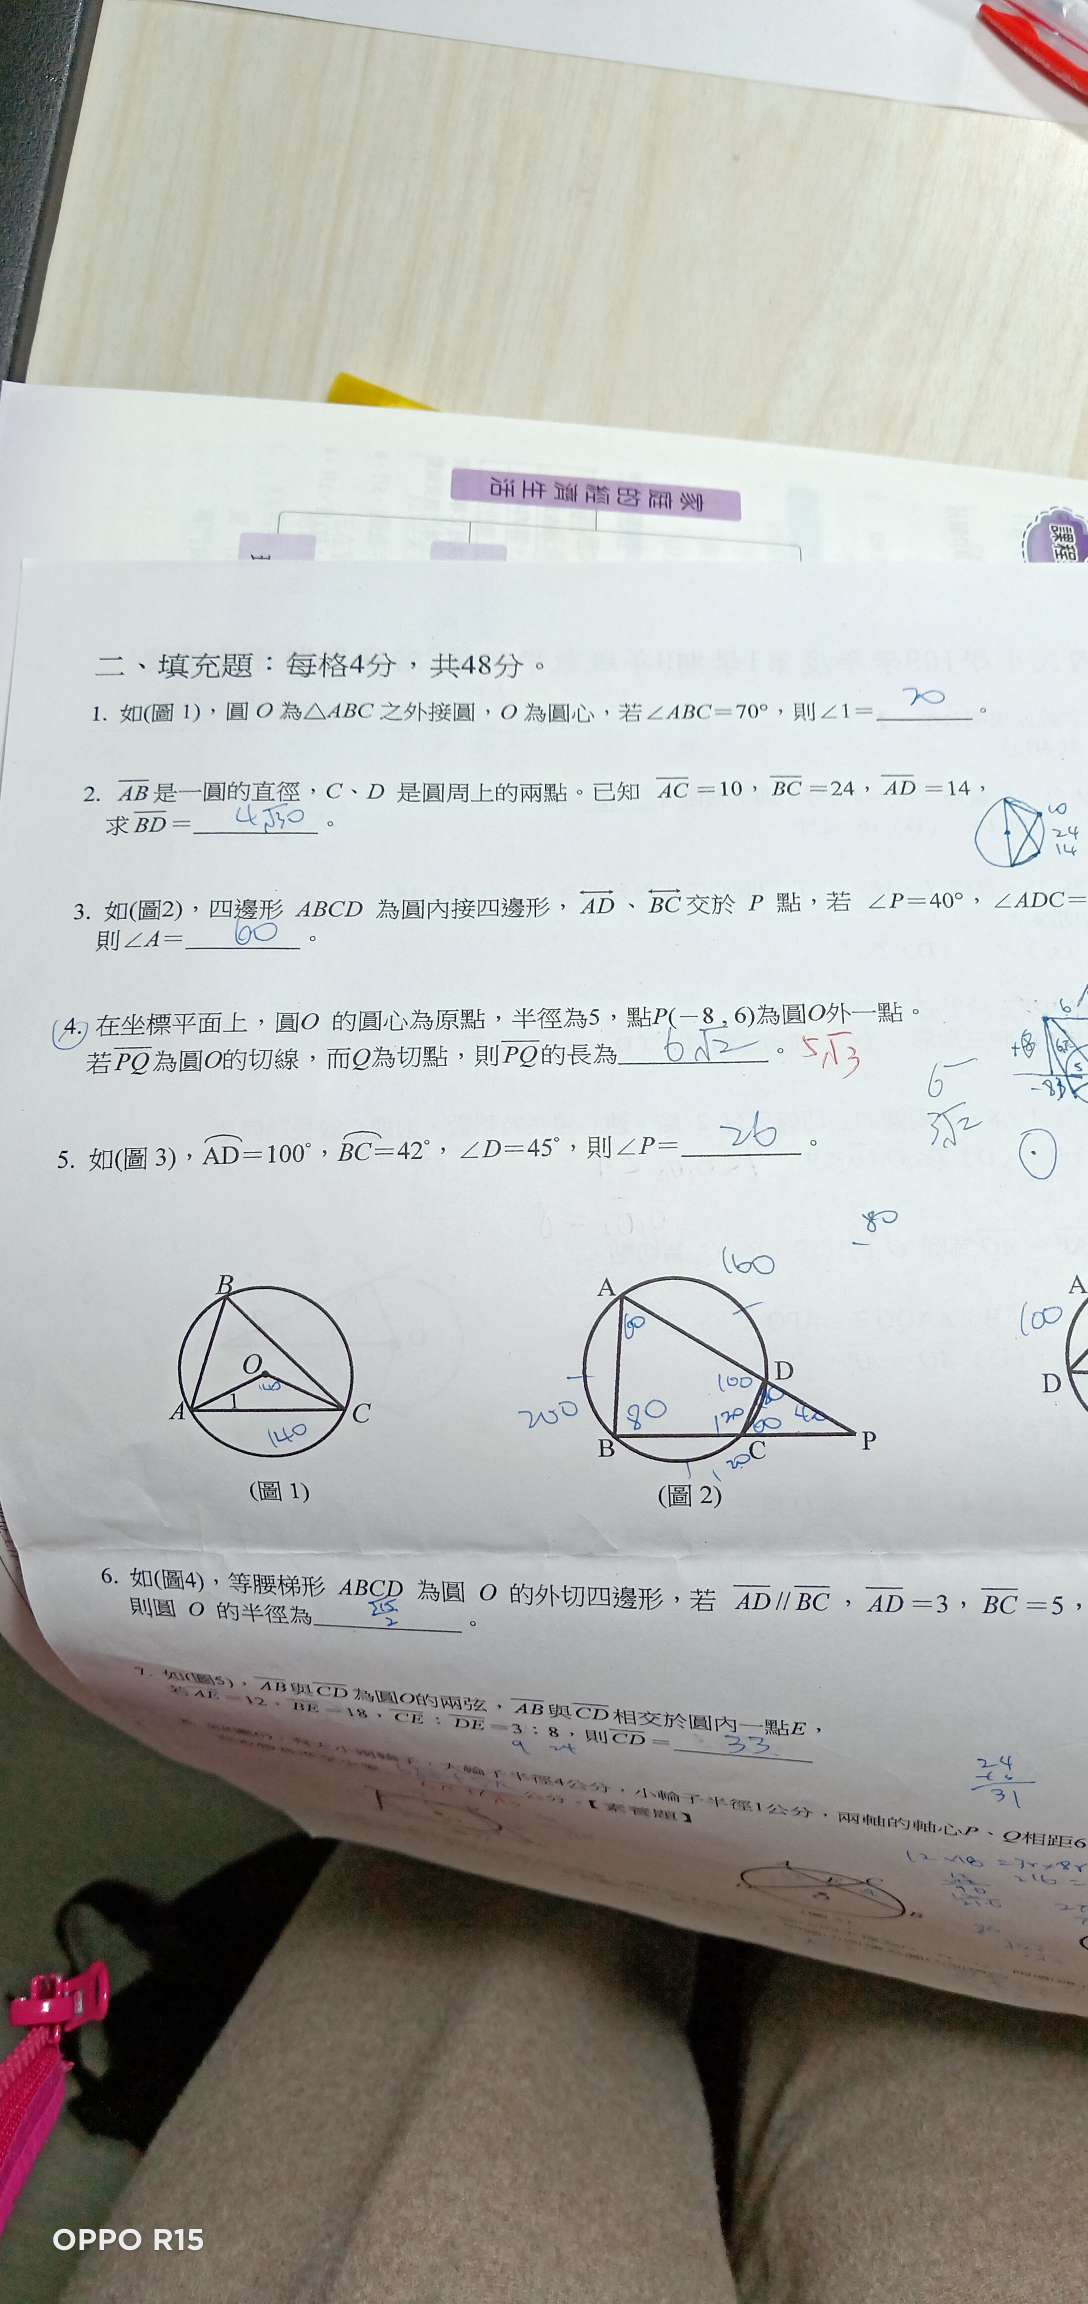 家庭的經濟生活
課程
二、填充題：每格4分，共48分。
1. 如(圖 1)，圓 O 為△ABC 之外接圓，O 為圓心，若∠ABC=70°，則∠1= 20 。
2. AB是一圓的直徑，C、D 是圓周上的兩點。已知 AC=10，BC=24，AD=14，
求BD= 4√30 。
10
24
14
3. 如(圖2)，四邊形 ABCD 為圓內接四邊形，AD、BC交於 P 點，若 ∠P=40°，∠ADC=
則∠A= 60 。
4. 在坐標平面上，圓O 的圓心為原點，半徑為5，點P(−8 , 6)為圓O外一點。
若PQ為圓O的切線，而Q為切點，則PQ的長為 6√2 。 5√3
6
3√2
5. 如(圖 3)，AD=100°，BC=42°，∠D=45°，則∠P= 26 。
80
B
O
A
1
C
140
(圖 1)
160
A
60
D
100
80
200
80
120
60
40
B
C
P
(圖 2)
A
100
D
6. 如(圖4)，等腰梯形 ABCD 為圓 O 的外切四邊形，若 AD//BC，AD=3，BC=5，
則圓 O 的半徑為 √15/2 。
7. 如(圖5)，AB與CD為圓O的兩弦，AB與CD相交於圓內一點E，
若AE=12，BE=18，CE：DE=3：8，則CD= 33
9 24
大輪子半徑4公分，小輪子半徑1公分，兩軸的軸心P、Q相距6
公分。【素養題】
24
31
216=
OPPO R15